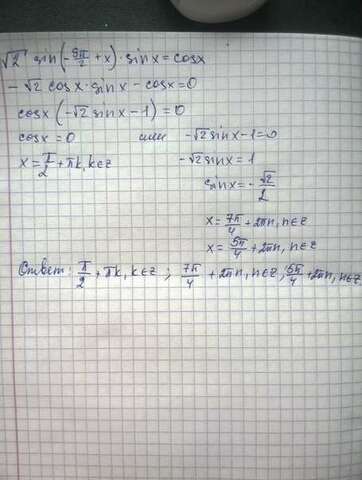 √2 sin(-5π/2 + x) · sinx = cosx
- √2 cosx · sinx - cosx = 0
cosx (-√2 sinx - 1) = 0
cosx = 0 или -√2 sinx - 1 = 0
x = π/2 + πk, k∈z -√2 sinx = 1
sinx = - √2/2
x = 7π/4 + 2πn, n∈z
x = 5π/4 + 2πn, n∈z
Ответ: π/2 + πk, k∈z ; 7π/4 + 2πn, n∈z ; 5π/4 + 2πn, n∈z